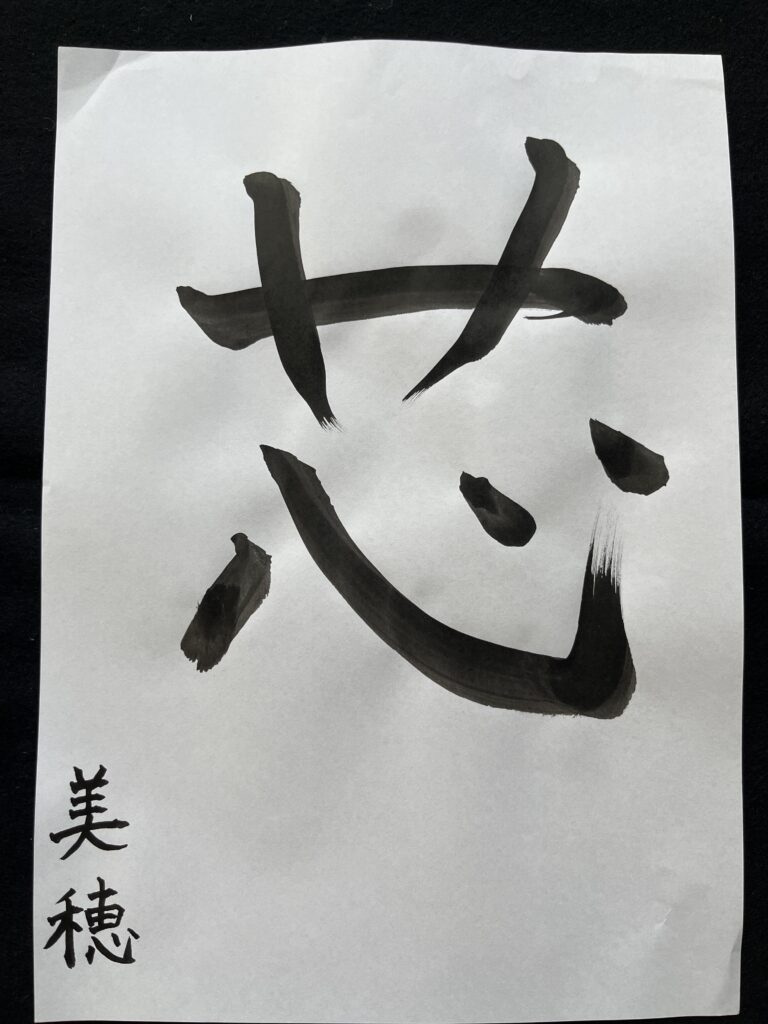 芯
美穂